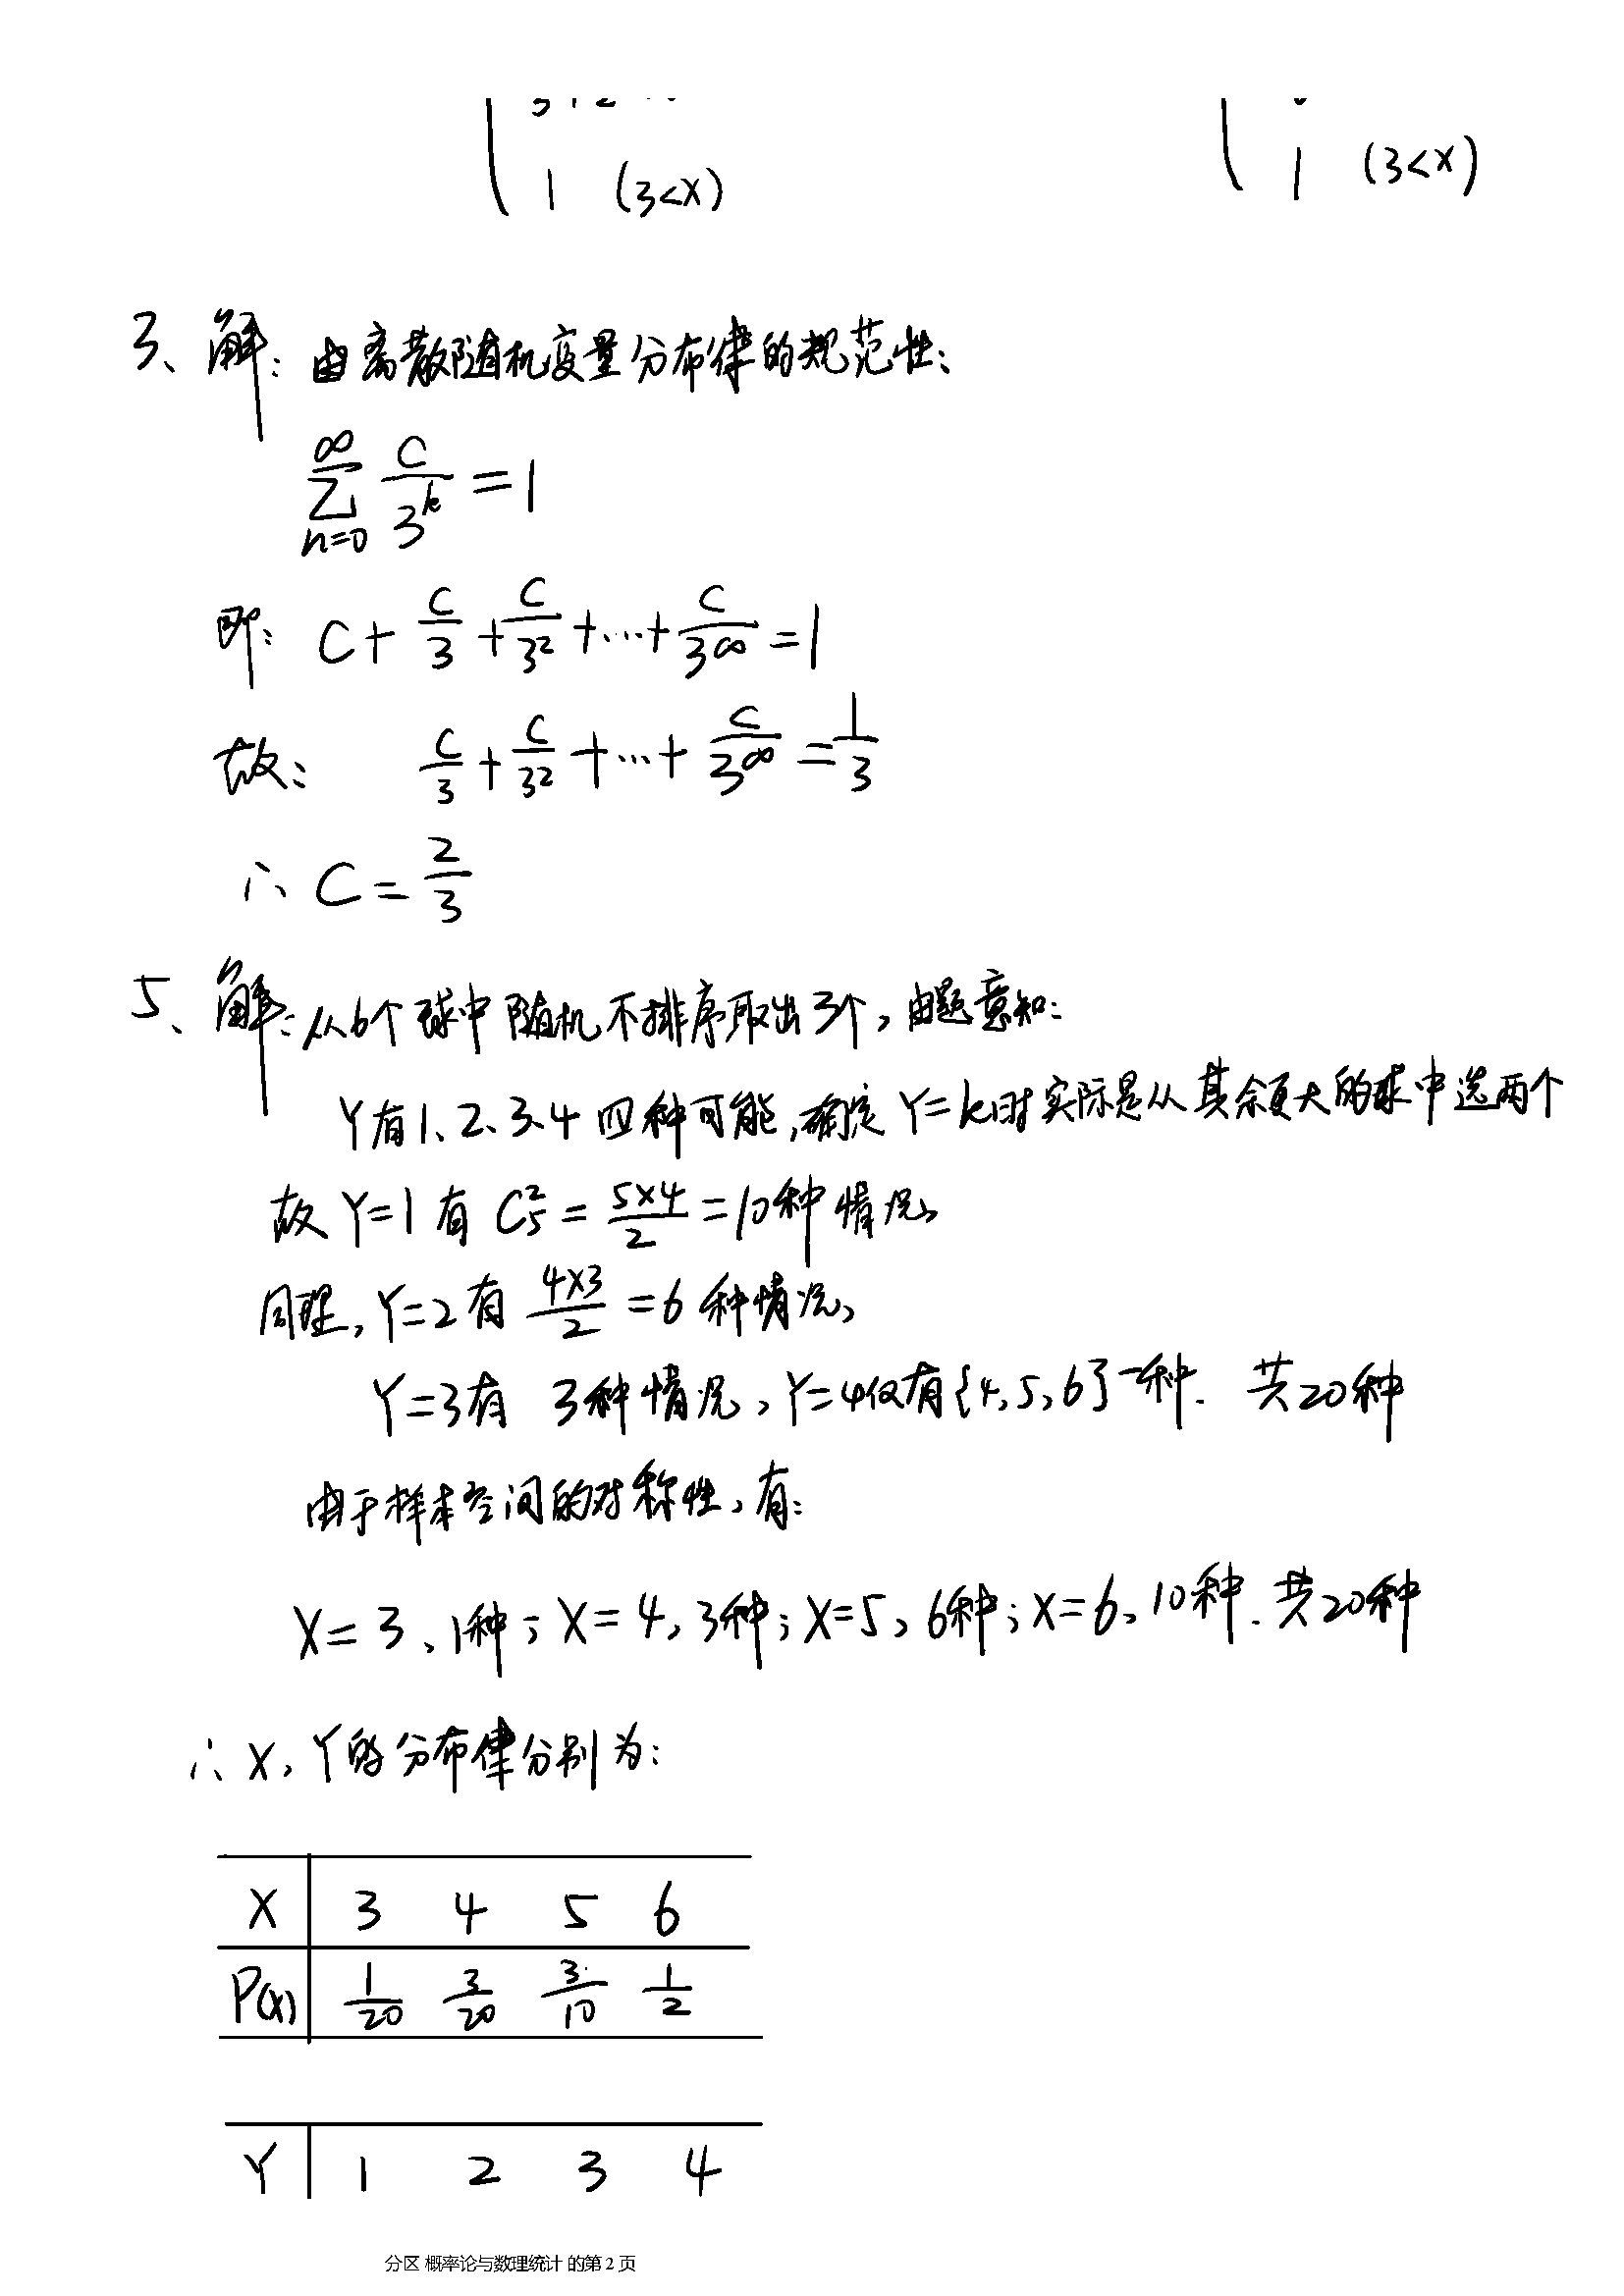 1 (3<x) 1 (3<x)
3、解：由离散随机变量分布律的规范性：
∑_{n=0}^{∞} C/3^k = 1
即：C + C/3 + C/3² + ⋯ + C/3^∞ = 1
故： C/3 + C/3² + ⋯ + C/3^∞ = 1/3
∴ C = 2/3
5、解：从6个球中随机不排序取出3个，由题意知：
Y有1、2、3、4四种可能，确定Y=k时实际是从其余更大的球中选两个
故Y=1有 C₅² = 5×4/2 = 10种情况，
同理，Y=2有 4×3/2 = 6种情况，
Y=3有 3种情况，Y=4仅有{4,5,6}一种. 共20种
由于样本空间的对称性，有：
X=3、1种；X=4，3种；X=5，6种；X=6、10种. 共20种
∴ X，Y的分布律分别为：
X 3 4 5 6
P(x) 1/20 3/20 3/10 1/2
Y 1 2 3 4
分区 概率论与数理统计 的第 2 页